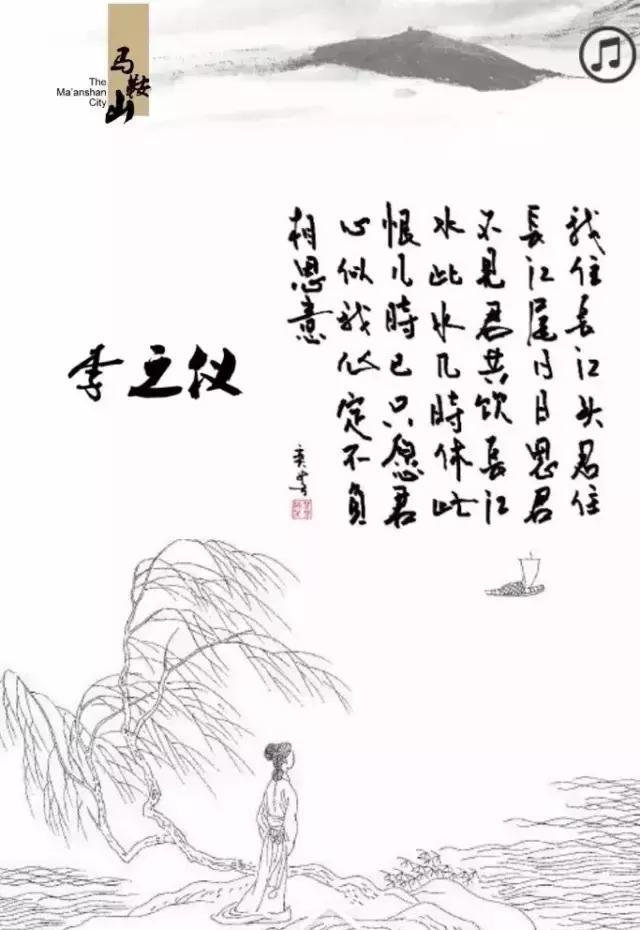 马鞍山
The
Ma'anshan
City
我住長江头君住
長江尾日日思君
不見君共饮長江
水此水几時休此
恨几時已只愿君
心似我心定不負
相思意
李之仪